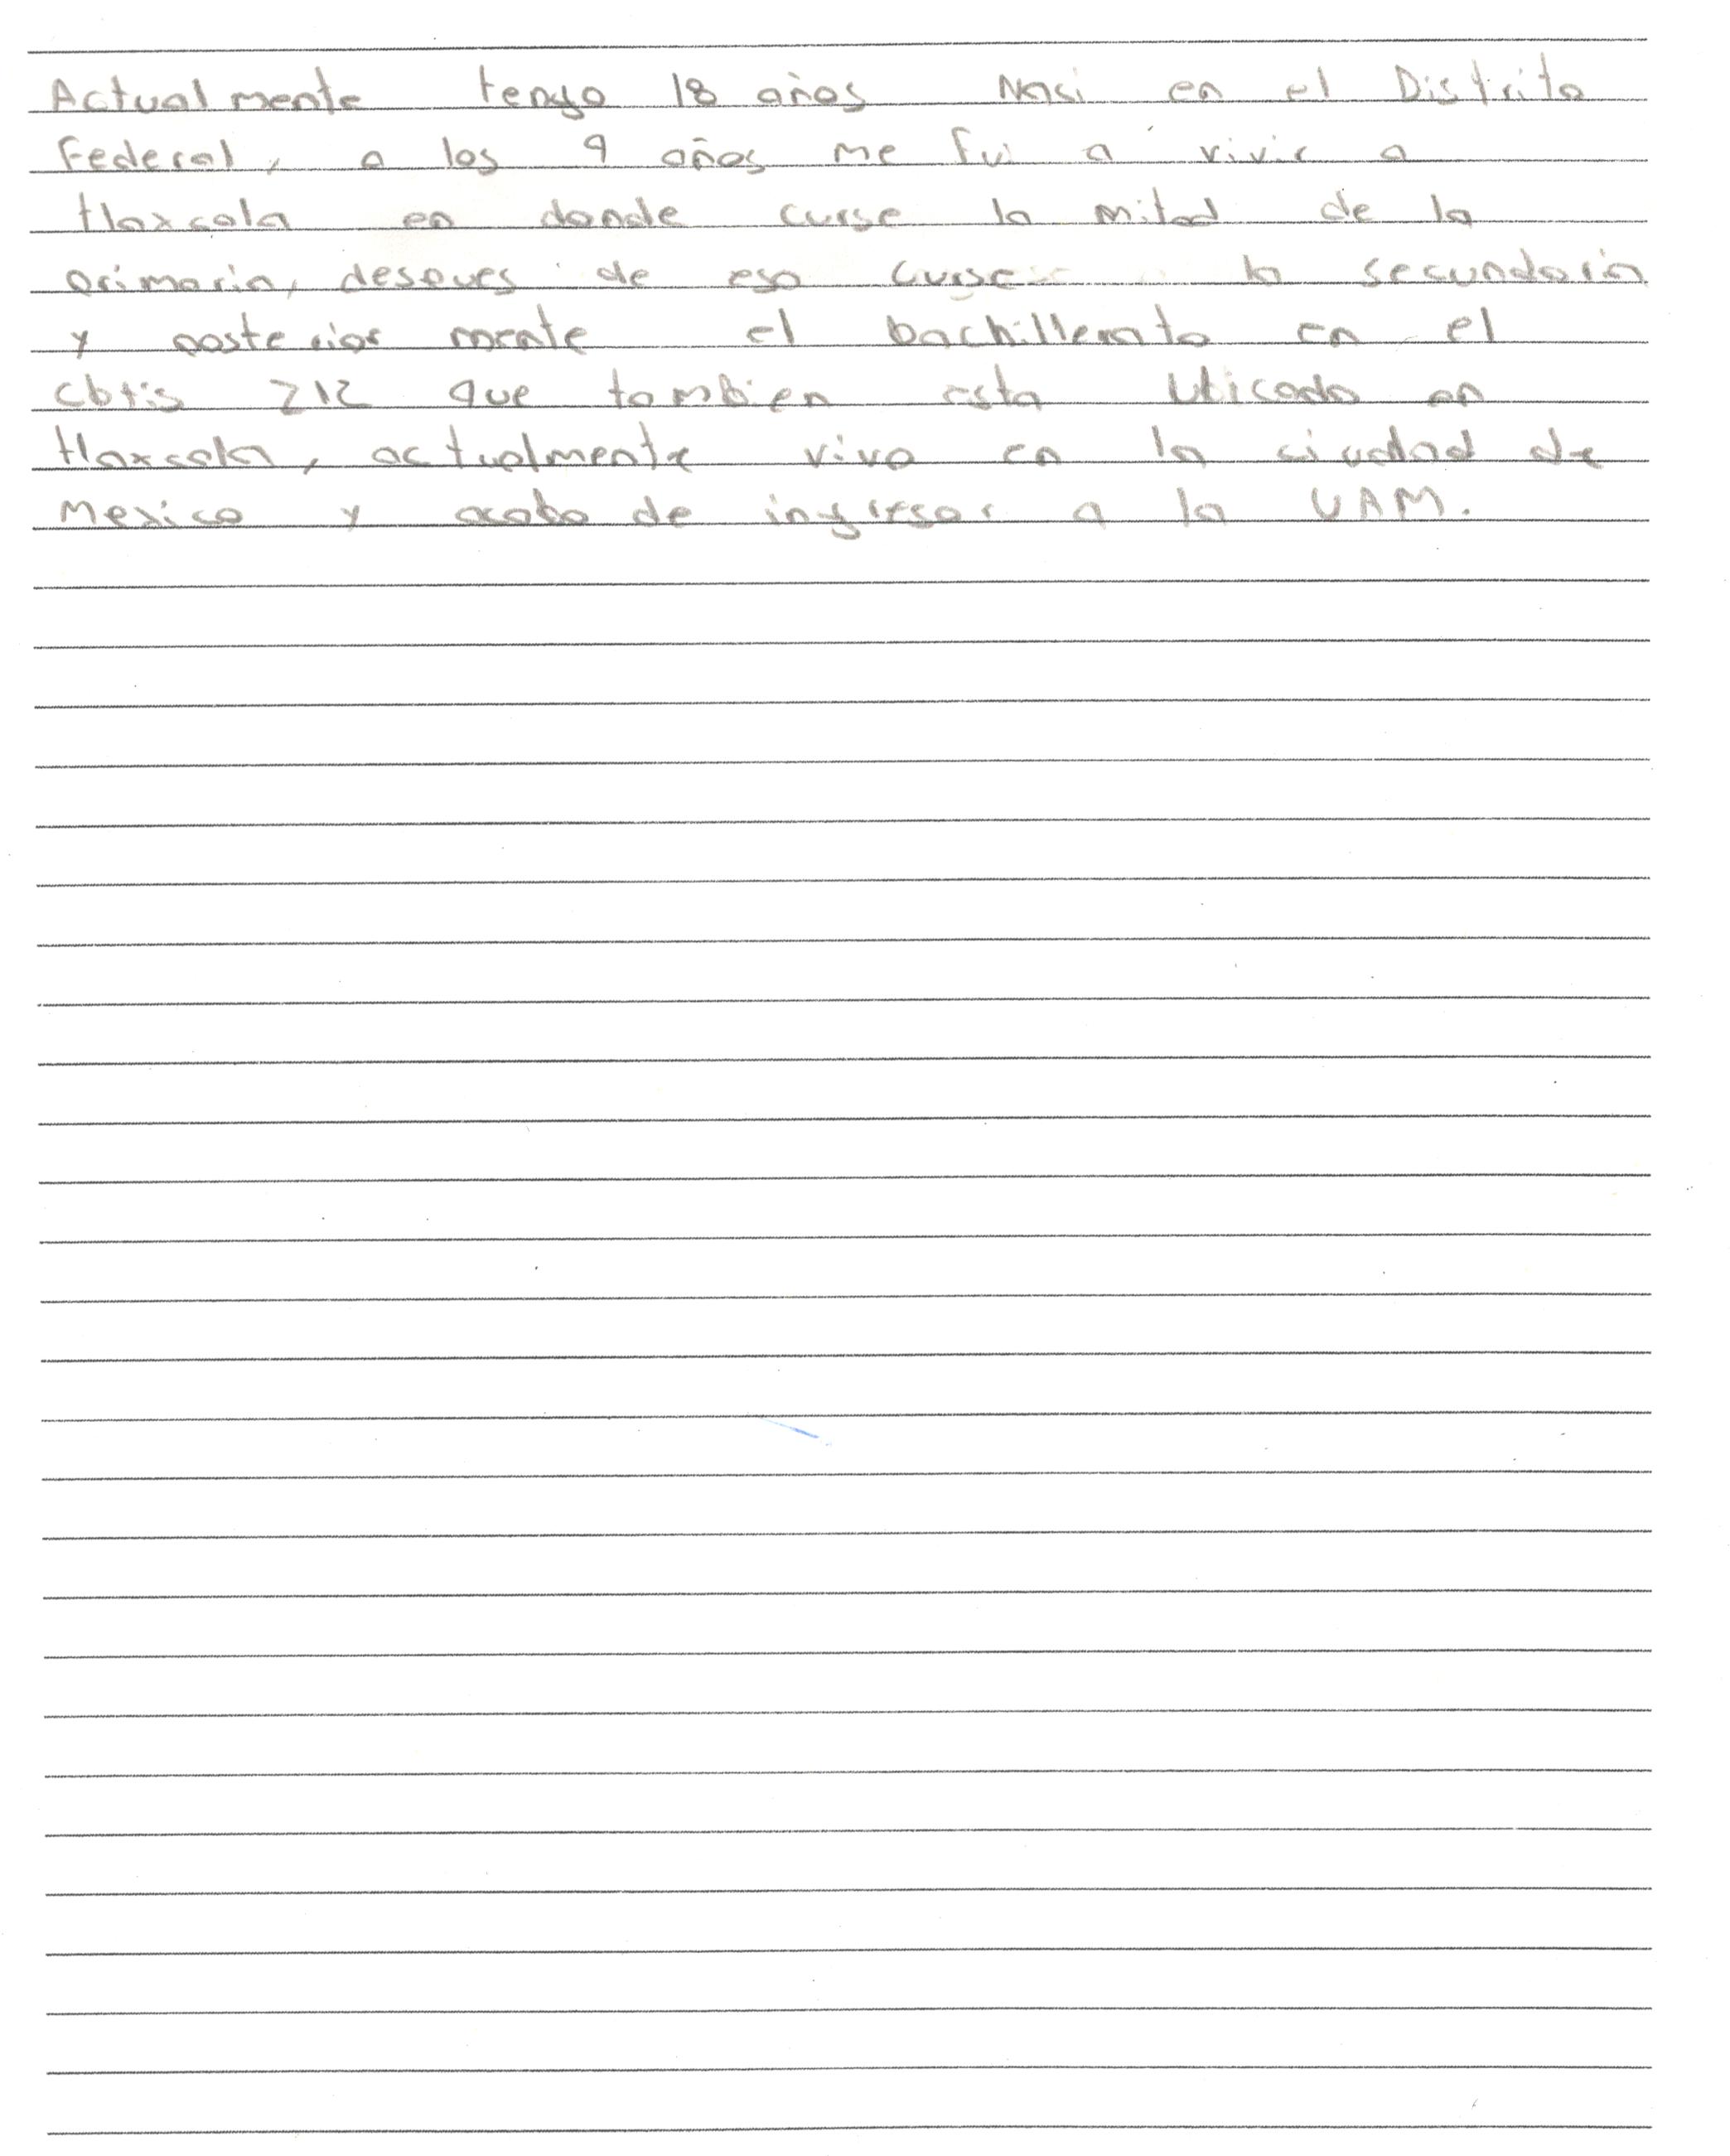 Actual mente tengo 18 años Nasi en el Distrito
Federal, a los 9 años me fui a vivir a
tlaxcala en donde curse la mitad de la
primaria, despues de eso curse la secundaria
y posterior mente el bachillerato en el
cbtis 212 que tambien esta Ubicado en
tlaxcala, actualmente vivo en la ciudad de
Mexico y acabo de ingresar a la UAM.